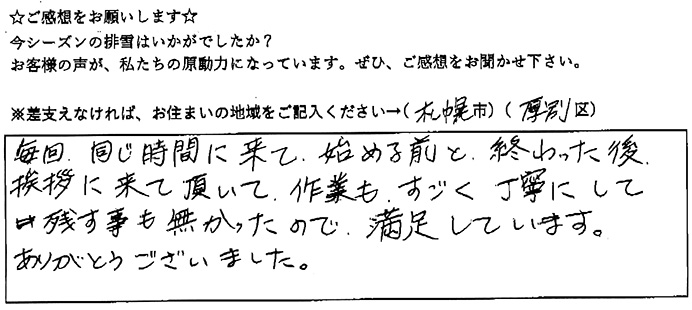 ☆ご感想をお願いします☆
今シーズンの排雪はいかがでしたか？
お客様の声が、私たちの原動力になっています。ぜひ、ご感想をお聞かせ下さい。
※差支えなければ、お住まいの地域をご記入ください→(札幌市)(厚別区)
毎回、同じ時間に来て、始める前と、終わった後、
挨拶に来て頂いて、作業も、すごく丁寧にして
残す事も無かったので、満足しています。
ありがとうございました。